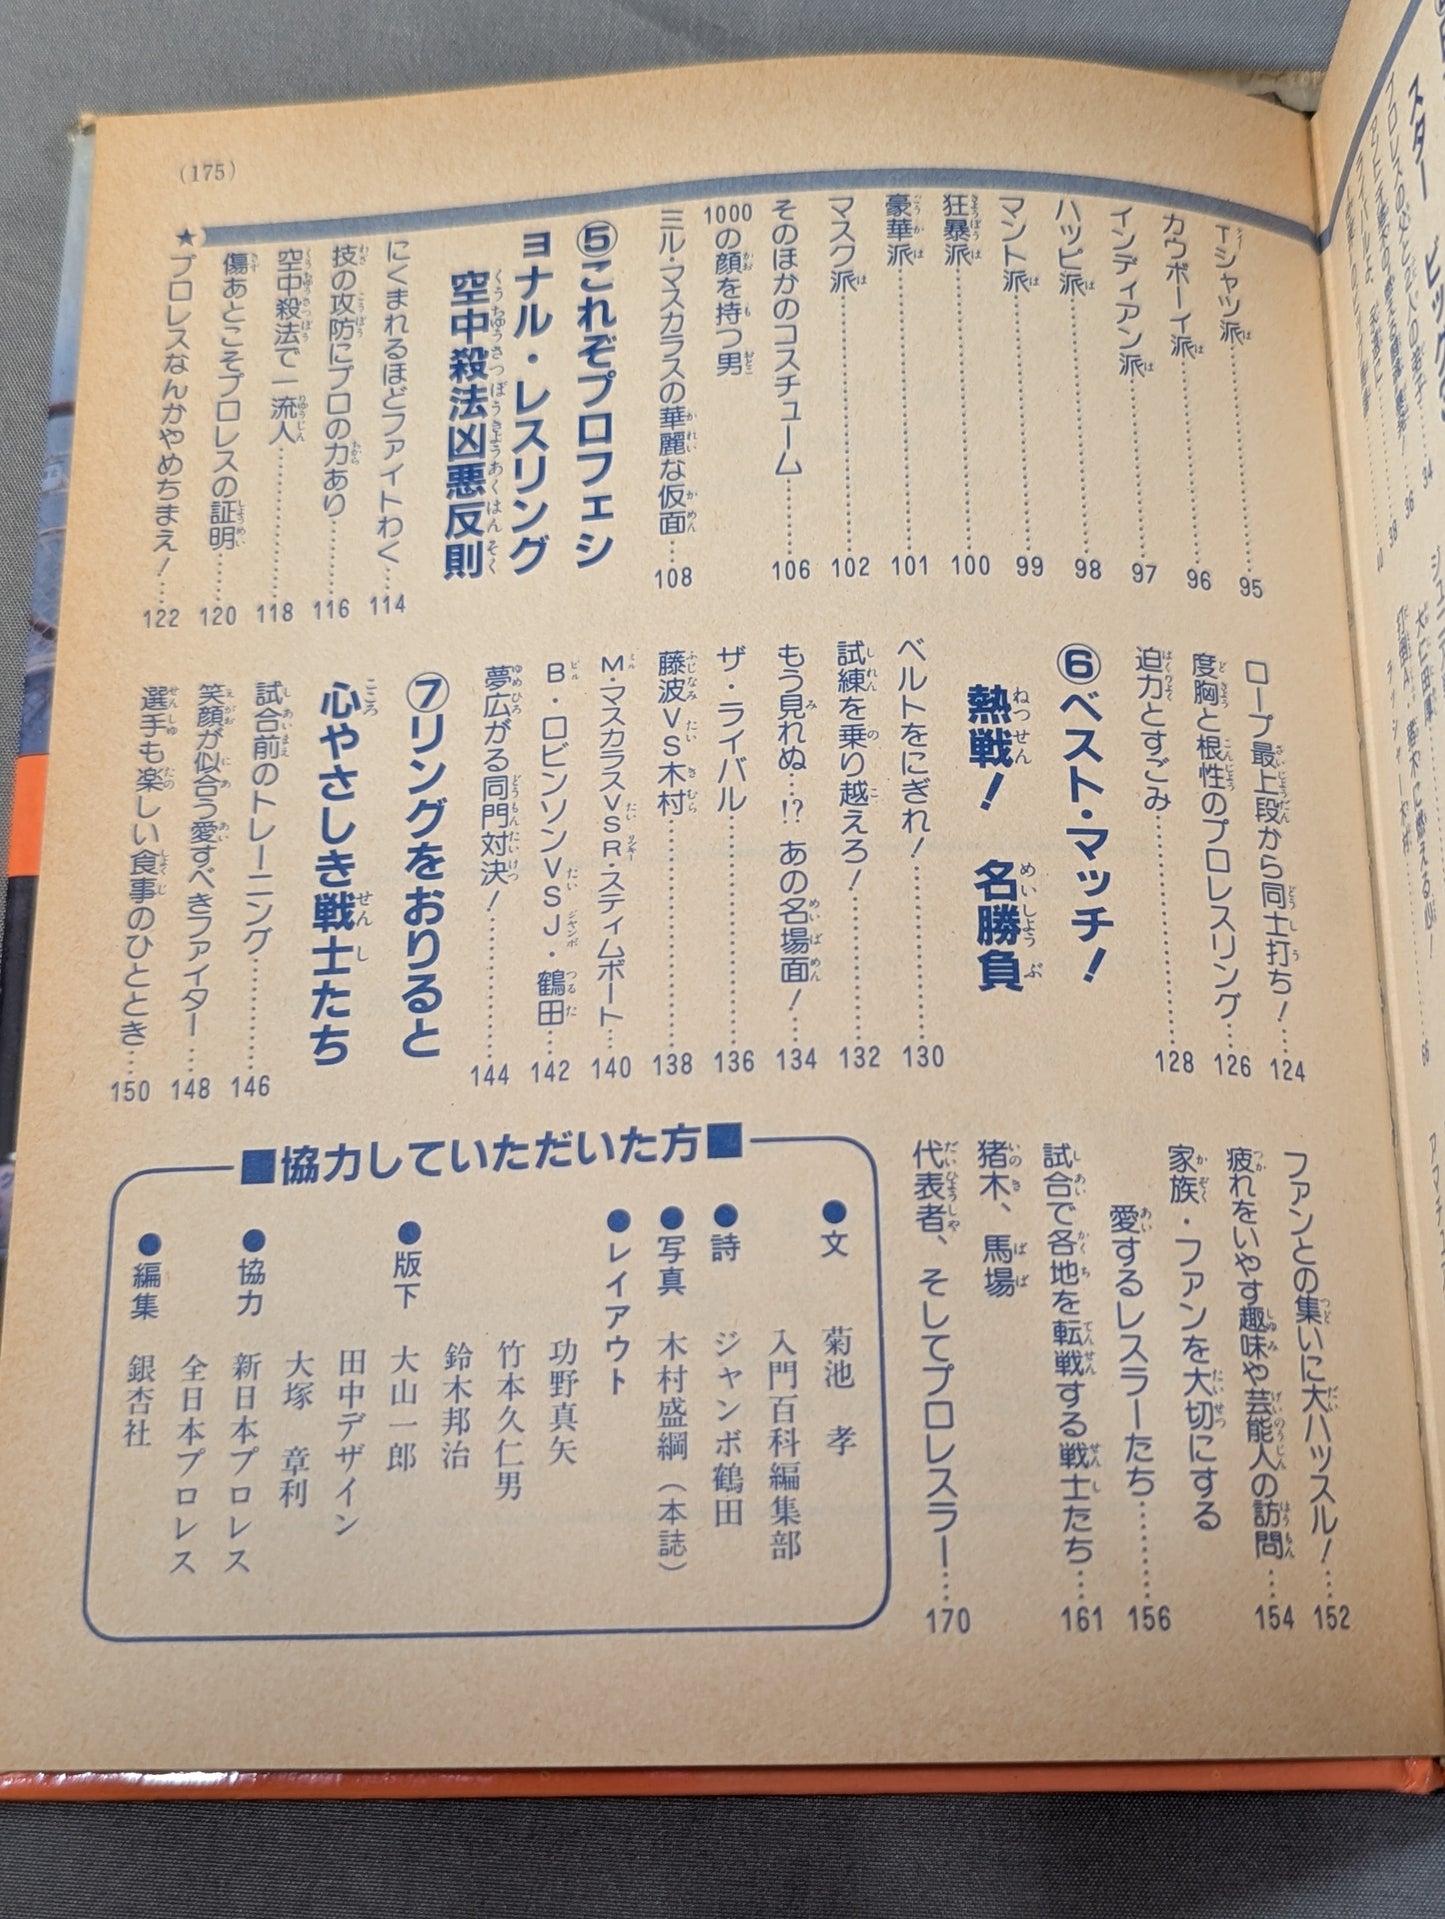 (175)
Tシャツ派……95
カウボーイ派……96
インディアン派……97
ハッピ派……98
マント派……99
狂暴派……100
豪華派……101
マスク派……102
そのほかのコスチューム……106
1000の顔を持つ男
ミル・マスカラスの華麗な仮面…108
⑤これぞプロフェシ
ョナル・レスリング
空中殺法凶悪反則
にくまれるほどファイトわく…114
技の攻防にプロの力あり……116
空中殺法で一流人……118
傷あとこそプロレスの証明…120
★プロレスなんかやめちまえ!…122
ロープ最上段から同士打ち!…124
度胸と根性のプロレスリング…126
迫力とすごみ……128
⑥ベスト・マッチ!
熱戦! 名勝負
ベルトをにぎれ!……130
試練を乗り越えろ!……132
もう見れぬ…!? あの名場面!…134
ザ・ライバル……136
藤波VS木村……138
M・マスカラスVSR・スティムボート…140
B・ロビンソンVSJ・鶴田…142
夢広がる同門対決!……144
⑦リングをおりると
心やさしき戦士たち
試合前のトレーニング……146
笑顔が似合う愛すべきファイター…148
選手も楽しい食事のひととき…150
ファンとの集いに大ハッスル!…152
疲れをいやす趣味や芸能人の訪問…154
家族・ファンを大切にする
愛するレスラーたち……156
試合で各地を転戦する戦士たち…161
猪木、馬場
代表者、そしてプロレスラー…170
■協力していただいた方■
●文 菊池 孝
入門百科編集部
●詩 ジャンボ鶴田
●写真 木村盛綱(本誌)
●レイアウト
功野真矢
竹本久仁男
鈴木邦治
●版下 大山一郎
田中デザイン
大塚 章利
●協力 新日本プロレス
全日本プロレス
●編集 銀杏社